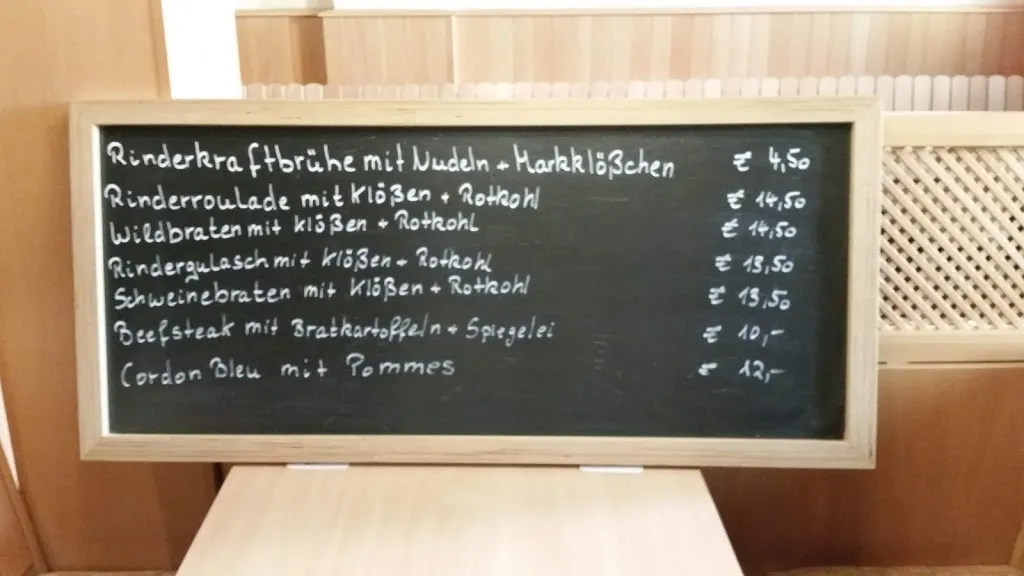 Rinderkraftbrühe mit Nudeln + Markklößchen € 4,50
Rinderroulade mit Klößen + Rotkohl € 14,50
Wildbraten mit Klößen + Rotkohl € 14,50
Rindergulasch mit Klößen + Rotkohl € 13,50
Schweinebraten mit Klößen + Rotkohl € 13,50
Beefsteak mit Bratkartoffeln + Spiegelei € 10,-
Cordon Bleu mit Pommes € 12,-